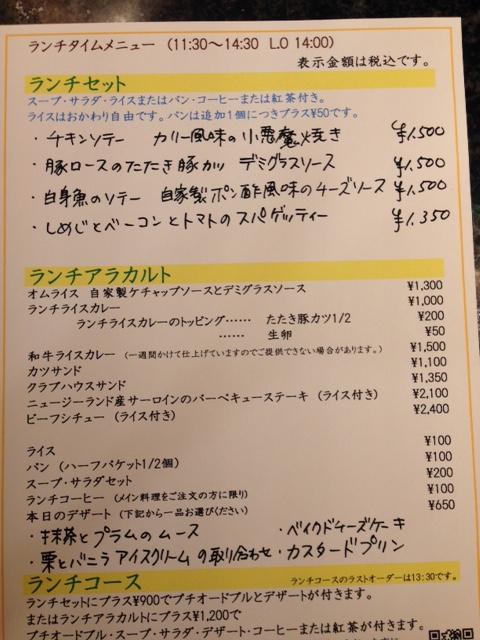 ランチタイムメニュー (11:30～14:30 L.O 14:00)
表示金額は税込です。
ランチセット
スープ・サラダ・ライスまたはパン・コーヒーまたは紅茶付き。
ライスはおかわり自由です。パンは追加1個につきプラス¥50です。
・チキンソテー カリー風味の小悪魔焼き ¥1,500
・豚ロースのたたき豚カツ デミグラスソース ¥1,500
・白身魚のソテー 自家製ポン酢風味のチーズソース ¥1,500
・しめじとベーコンとトマトのスパゲッティー ¥1,350
ランチアラカルト
オムライス 自家製ケチャップソースとデミグラスソース ¥1,300
ランチライスカレー ¥1,000
ランチライスカレーのトッピング…… たたき豚カツ1/2 ¥200
…… 生卵 ¥50
和牛ライスカレー (一週間かけて仕上げていますのでご提供できない場合があります。) ¥1,500
カツサンド ¥1,100
クラブハウスサンド ¥1,350
ニュージーランド産サーロインのバーベキューステーキ (ライス付き) ¥2,100
ビーフシチュー (ライス付き) ¥2,400
ライス ¥100
パン (ハーフバケット1/2個) ¥100
スープ・サラダセット ¥200
ランチコーヒー (メイン料理をご注文の方に限り) ¥100
本日のデザート (下記から一品お選びください) ¥650
・抹茶とプラムのムース ・ベイクドチーズケーキ
・栗とバニラアイスクリームの取り合わせ ・カスタードプリン
ランチコース ランチコースのラストオーダーは13:30です。
ランチセットにプラス¥900でプチオードブルとデザートが付きます。
またはランチアラカルトにプラス¥1,200で
プチオードブル・スープ・サラダ・デザート・コーヒーまたは紅茶が付きます。